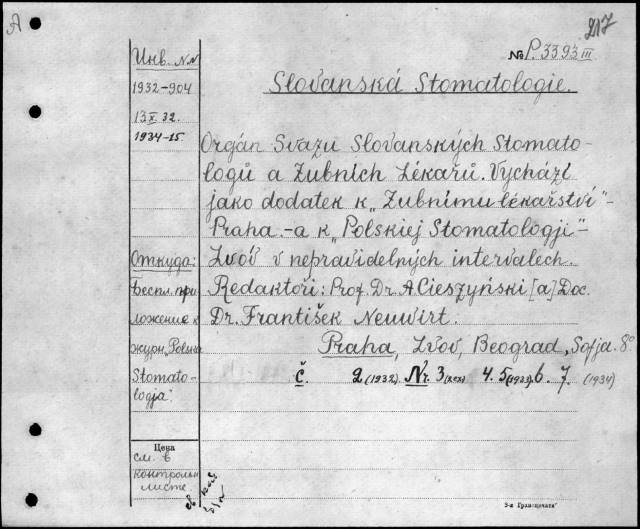 A
217
№ P.3393 III
Инв. №№
1932-904
13 X 32.
1934-15
Slovanská Stomatologie.
Orgán Svazu Slovanských Stomato-
logů a Zubních Lékařů. Vychází
jako dodatek k „Zubnímu lékařství"-
Praha.-a k „Polskiej Stomatologji"-
Lvóv v nepravidelných intervalech.
Redaktoři: Prof. Dr. A Cieszyński [a] Doc.
Dr. František Neuwirt.
Praha, Lvov, Beograd, Sofja. 8°
č. 2 (1932) Nr. 3 4. 5 (1933) 6. 7. (1934)
Откуда:
Беспл. при
ложение к
журн. „Polska
Stomato-
logja".
Цена
см. в
контрольн
листе.
3-я Гранпечати"